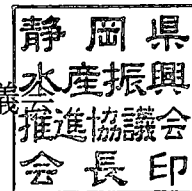 静岡県
水産振興
推進協議会
会長印
義